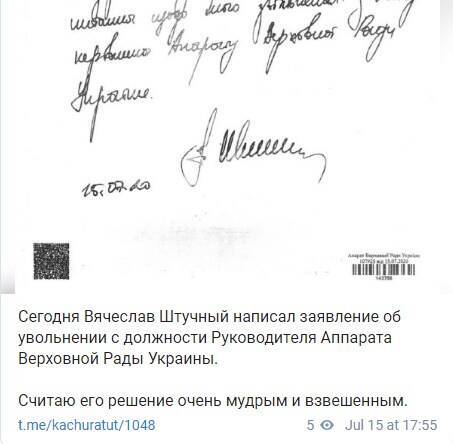 керівника Апарату Верховної Ради
України.
15.07.20
Апарат Верховної Ради України
Сегодня Вячеслав Штучный написал заявление об
увольнении с должности Руководителя Аппарата
Верховной Рады Украины.
Считаю его решение очень мудрым и взвешенным.
t.me/kachuratut/1048 5 Jul 15 at 17:55